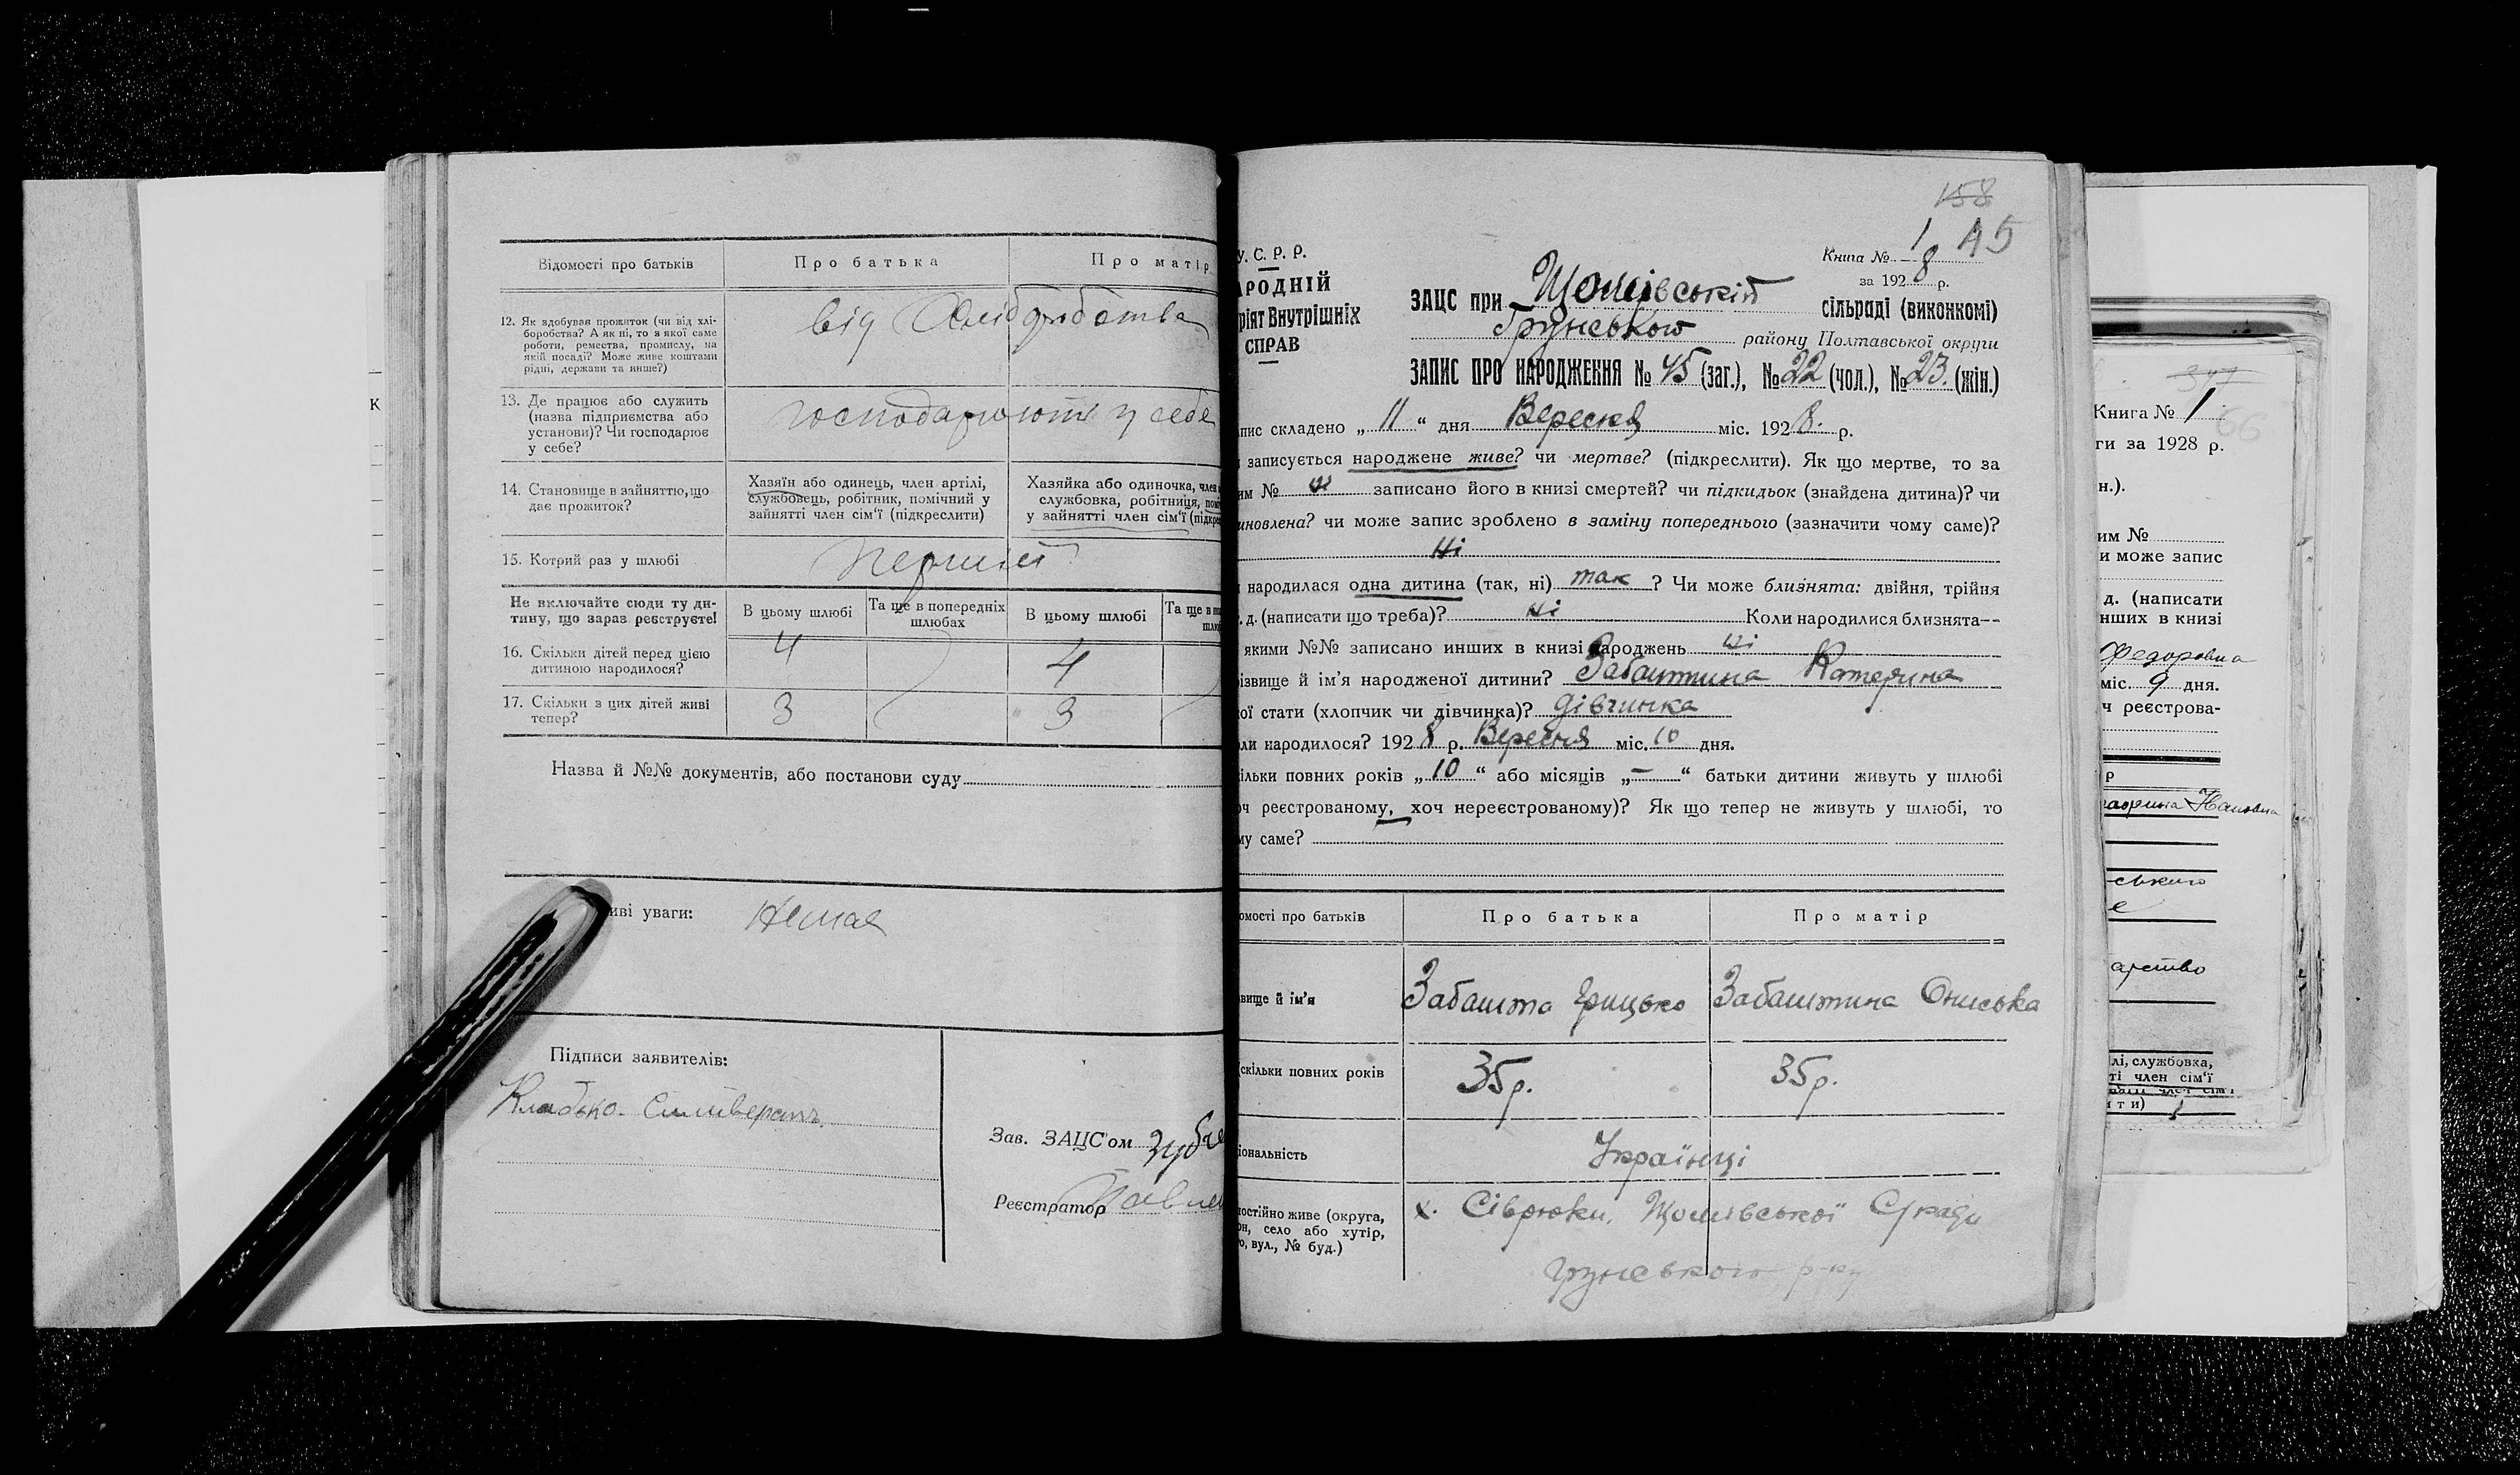 Відомості про батьків
Про батька
Про матір
12. Як здобуває прожиток (чи від хлі-
боробства? А як ні, то з якої саме
роботи, ремества, промислу, на
якій посаді? Може живе коштами
рідні, держави та инше?)
від Хліборобства
13. Де працює або служить
(назва підприємства або
установи)? Чи господарює
у себе?
господарюють у себе
14. Становище в зайняттю, що
дає прожиток?
Хазяїн або одинець, член артілі,
службовець, робітник, помічний у
зайнятті член сім'ї (підкреслити)
Хазяйка або одиночка, член
службовка, робітниця,
у зайнятті член сім'ї
15. Котрий раз у шлюбі
перший
Не включайте сюди ту ди-
тину, що зараз реєструєте!
В цьому шлюбі
Та ще в попередніх
шлюбах
В цьому шлюбі
Та ще в
16. Скільки дітей перед цією
дитиною народилося?
4
4
17. Скільки з цих дітей живі
тепер?
3
3
Назва й №№ документів, або постанови суду
уваги: Немає
Підписи заявителів:
Зав. ЗАЦС'ом
Реєстратор
158
У. С. Р. Р.
АРОДНІЙ
ріят Внутрішніх
СПРАВ
Книга № 1 45
за 1928 р.
ЗАЦС при Щомівській сільраді (виконкомі)
Грунського району Полтавської округи
ЗАПИС ПРО НАРОДЖЕННЯ № 45 (заг.), № 22 (чол.), № 23. (жін.)
пис складено „ 11 “ дня Вересня міс. 1928. р.
записується народжене живе? чи мертве? (підкреслити). Як що мертве, то за
им № ні записано його в книзі смертей? чи підкидьок (знайдена дитина)? чи
иновлена? чи може запис зроблено в заміну попереднього (зазначити чому саме)?
ні
народилася одна дитина (так, ні) так ? Чи може близнята: двійня, трійня
. д. (написати що треба)? ні Коли народилися близнята—
якими №№ записано инших в книзі народжень ні
ізвище й ім'я народженої дитини? Забаштина Катерина
ої стати (хлопчик чи дівчинка)? дівчинка
ли народилося? 1928 р. Вересня міс. 10 дня.
ільки повних років „ 10 “ або місяців „ — “ батьки дитини живуть у шлюбі
оч реєстрованому, хоч нереєстрованому)? Як що тепер не живуть у шлюбі, то
му саме?
омості про батьків
Про батька
Про матір
вище й ім'я
Забашта Грицько
Забаштина Ониська
скільки повних років
35р.
35р.
іональність
Українці
постійно живе (округа,
он, село або хутір,
о, вул., № буд.)
х. Сіврюки, Щомівської С/ради
Грунського р-ну
347
Книга № 1
66
ги за 1928 р.
н.).
им №
и може запис
д. (написати
нших в книзі
Федоровна
міс. 9 дня.
ч реєстрова-
р
ського
е
арство
лі, службовка,
ті член сім'ї